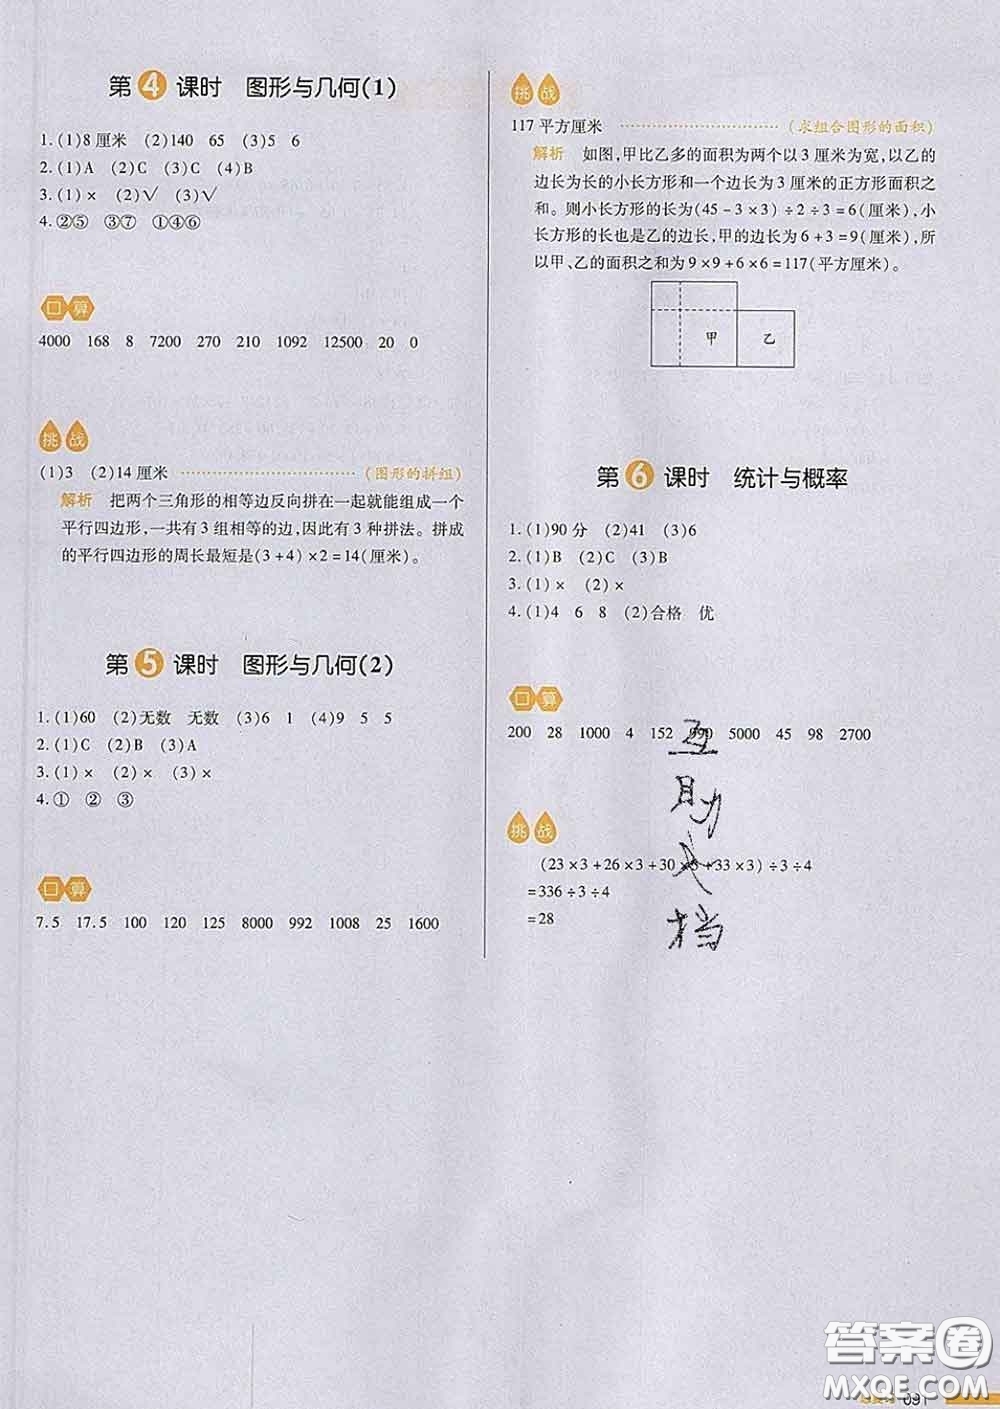 第4课时 图形与几何(1)
1.(1)8厘米 (2)140 65 (3)5 6
2.(1)A (2)C (3)C (4)B
3.(1)× (2)√ (3)√
4.②⑤ ③⑦ ①④⑥
口算
4000 168 8 7200 270 210 1092 12500 20 0
挑战
(1)3 (2)14厘米 (图形的拼组)
解析 把两个三角形的相等边反向拼在一起就能组成一个
平行四边形,一共有3组相等的边,因此有3种拼法。拼成
的平行四边形的周长最短是(3+4)×2=14(厘米)。
第5课时 图形与几何(2)
1.(1)60 (2)无数 无数 (3)6 1 (4)9 5 5
2.(1)C (2)B (3)A
3.(1)× (2)× (3)×
4.① ② ③
口算
7.5 17.5 100 120 125 8000 992 1008 25 1600
挑战
117平方厘米 (求组合图形的面积)
解析 如图,甲比乙多的面积为两个以3厘米为宽,以乙的
边长为长的小长方形和一个边长为3厘米的正方形面积之
和。则小长方形的长为(45-3×3)÷2÷3=6(厘米),小
长方形的长也是乙的边长,甲的边长为6+3=9(厘米),所
以甲、乙的面积之和为9×9+6×6=117(平方厘米)。
甲 乙
第6课时 统计与概率
1.(1)90分 (2)41 (3)6
2.(1)B (2)C (3)B
3.(1)× (2)×
4.(1)4 6 8 (2)合格 优
口算
200 28 1000 4 152 990 5000 45 98 2700
挑战
(23×3+26×3+30×3+33×3)÷3÷4
=336÷3÷4
=28
互
助
文
档
答案圈
MXQE.COM
091